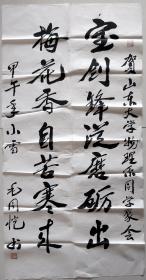 贺山东大学物理系同学聚会
宝剑锋从磨砺出
梅花香自苦寒来
甲午年小雪
毛同悦书